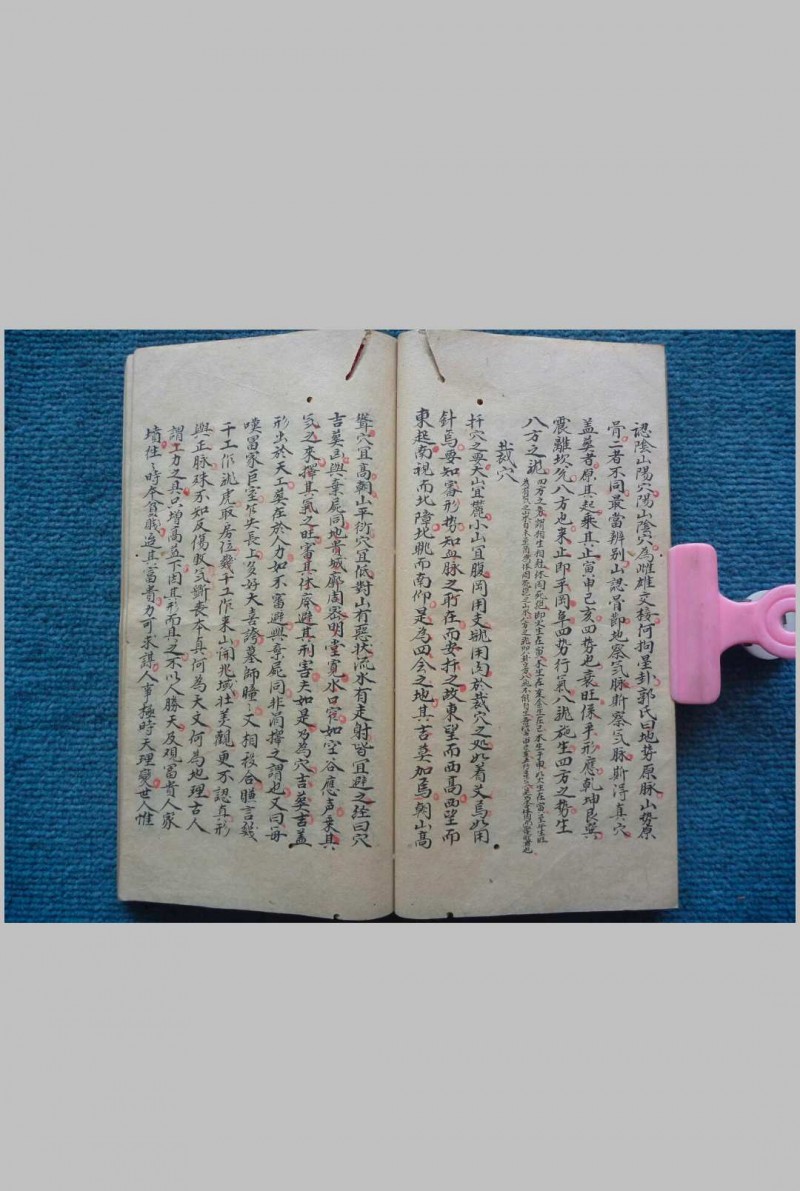 認陰山陽穴陽山陰穴為雌雄交接河拘星卦郭氏曰地势原脉山勢原
骨二者不同最當辨别山認骨節地察氣脉斯察氣脉斯得真穴
盖葬者原其起乘其止寅申巳亥四势也衰旺係乎形應乾坤艮巽
震離坎兌八方也来止即乎岡阜四势行氣八龍施生四方之势生
八方之龍
裁穴
扦穴之要大山宜 小山宜腹岡用支龍用 於裁穴之处如着艾焉如用
針焉要知審形势知血脉之所在而安扦之故東望而西高西望而
東起南視而北障北眺而南仰是為四会之地其吉葬加焉朝山高
聳穴宜高朝山平衍穴宜低對山有惡状流水有走射皆宜避之経曰穴
吉葬凶與棄屍同地貴城廓周密明堂寬水口窄如空谷應声乘其
氣之来擇其氣之旺審其体 避其刑害夫如是乃為穴吉葬吉盖
形出於天工葬在於人力如不審避與棄屍同非簡擇之謂也又曰每
嘆富家巨室 失長上多好大喜誇墓師瞳々又相投合臆言幾
千工作龍虎取居位幾千工作来山開兆域壮美觀更不認真形
與正脉殊不知反傷敗氣斷喪本真何為天文何為地理古人
謂工力之具只增高益下因其形而具之不以人勝天反观富者人家
墳住々時本貧賤迨其富者力可求謀人事極時天理變世人惟